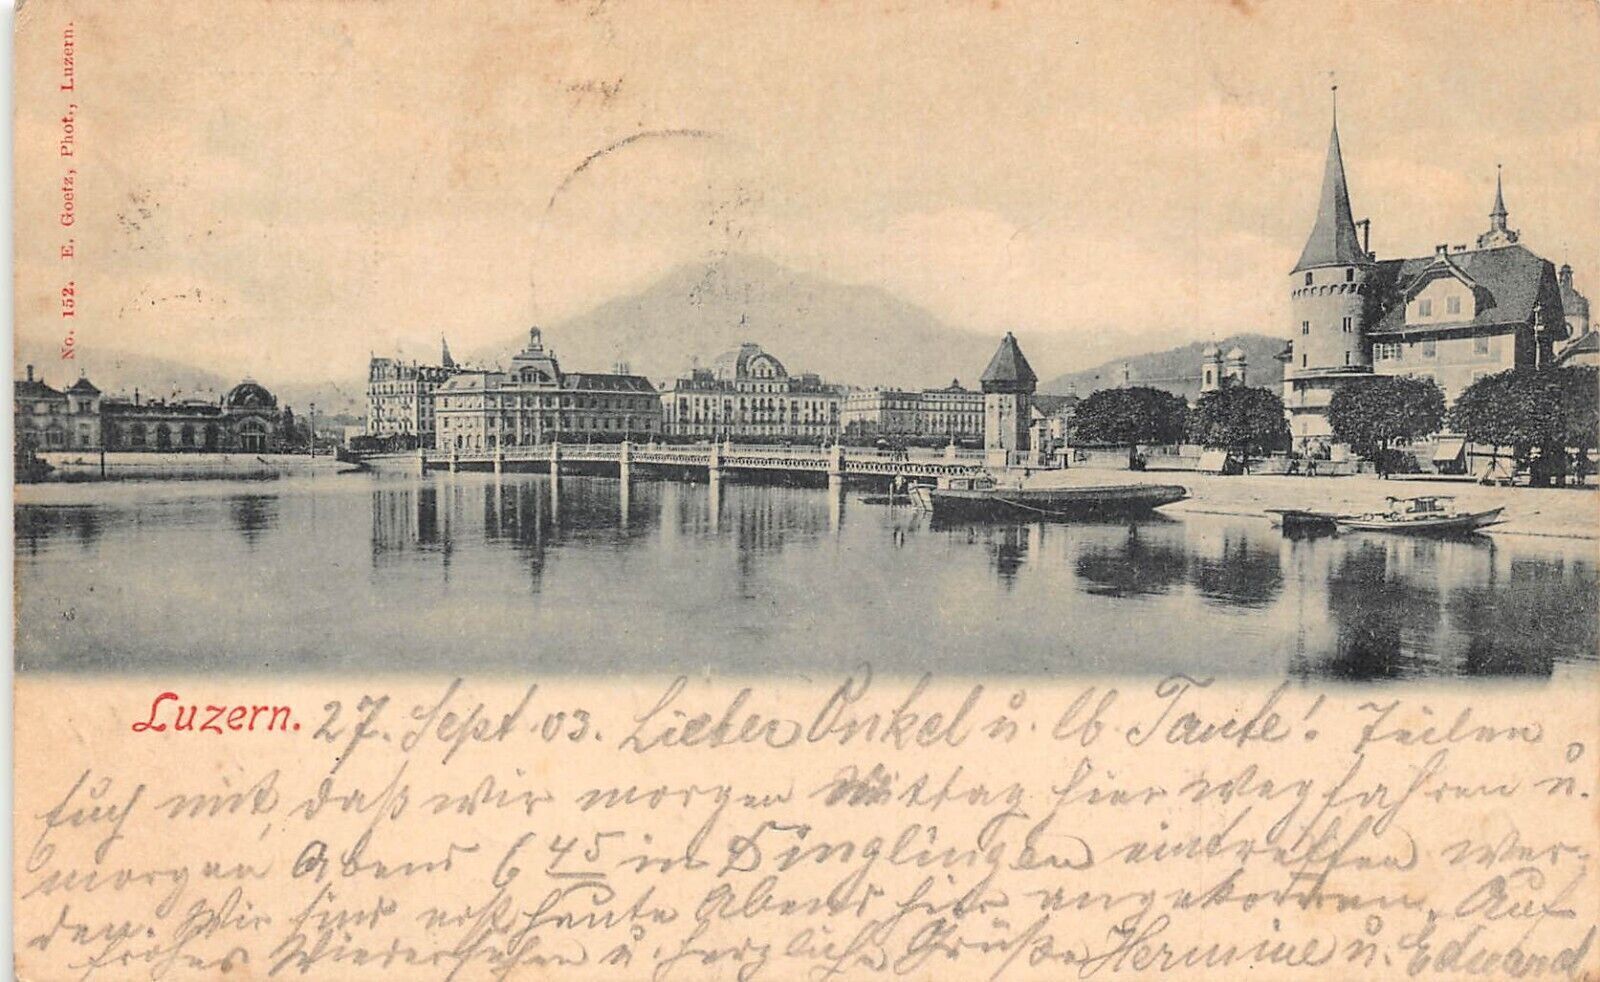 No. 152. E. Goetz, Phot., Luzern.
Luzern. 27. Sept. 03. Lieber Onkel u. lb. Tante! Teilen
Euch mit, daß wir morgen Mittag hier wegfahren u.
morgen Abend 6 45 in Dinglingen eintreffen wer-
den. Wir sind erst heute Abend hier angekommen. Auf
frohes Wiedersehen u. herzliche Grüße Hermine u. Eduard